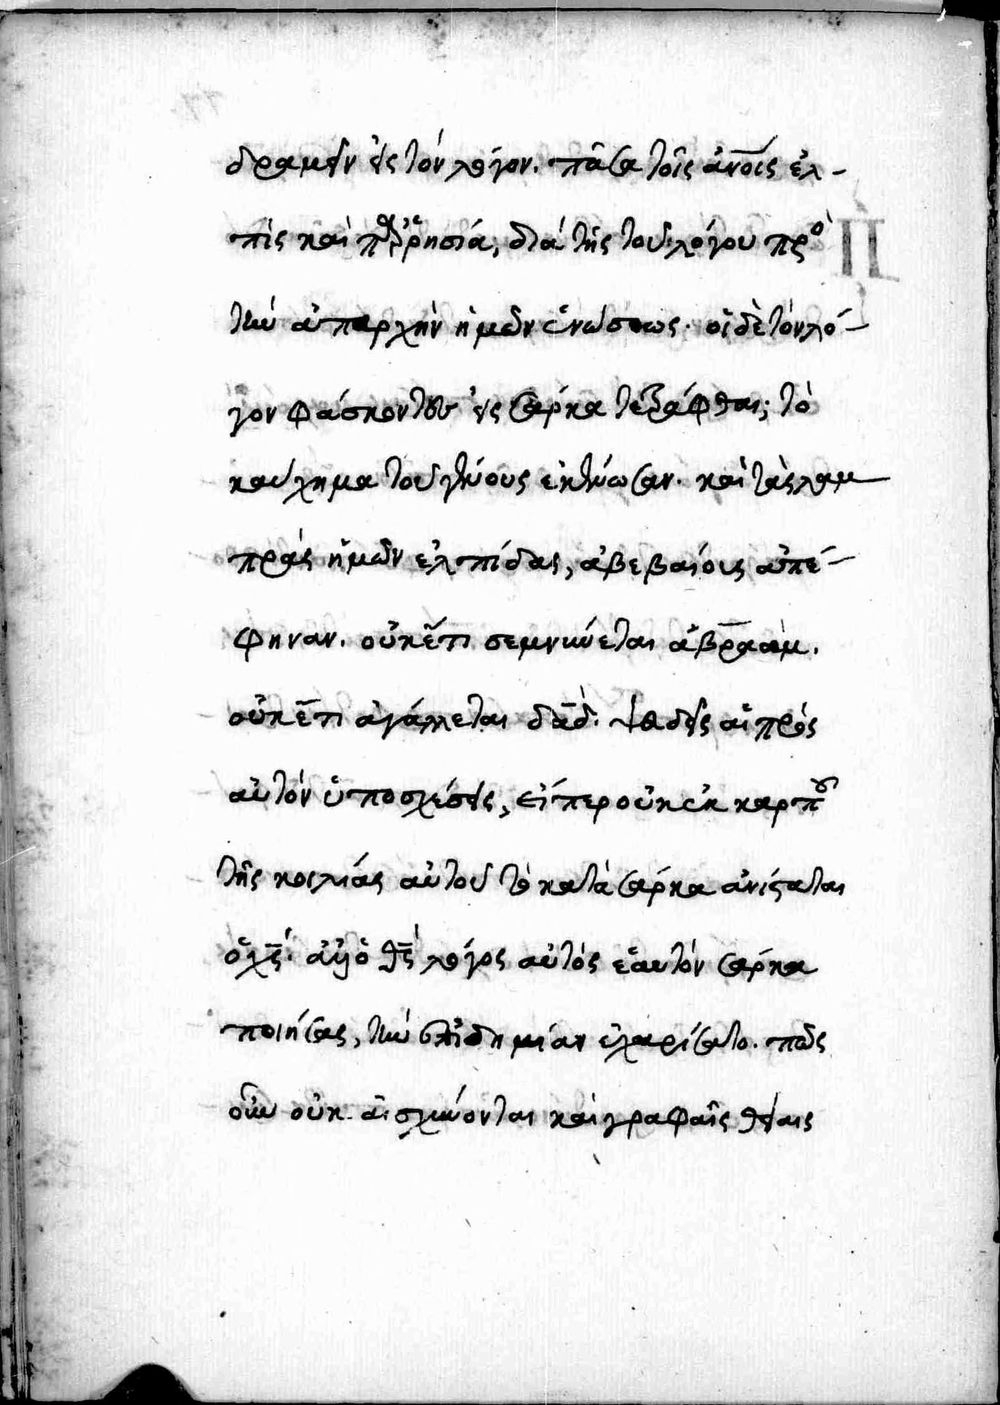 δραμεῖν εἰς τὸν λόγον. πᾶσα τοῖς ἀνοις ἐλ-
πὶς καὶ παῤῥησία, διὰ τῆς τοῦ λόγου πρὸ
τὴν ἀπαρχὴν ἡμῶν ἑνώσεως. οἱ δὲ τὸν λό-
γον φάσκοντες εἰς σάρκα τετράφθαι, τὸ
καύχημα τοῦ γένους ἐκένωσαν. καὶ τὰς λαμ
πρὰς ἡμῶν ἐλπίδας, ἀβεβαίους ἀπέ-
φηναν. οὐκέτι σεμνύνεται ἀβραάμ.
οὐκέτι ἀγάλλεται δᾱδ. ψευδεῖς αἱ πρὸς
αὐτὸν ὑποσχέσεις, εἴπερ οὐκ ἐκ καρποῦ
τῆς κοιλίας αὐτοῦ τὸ κατὰ σάρκα ἀνίσταται
ὁ χς. ἀλλ' ὁ θς λόγος αὐτὸς ἑαυτὸν σάρκα
ποιήσας, τὴν ἐπιδημίαν ἐχαρίσατο. πῶς
οὖν οὐκ αἰσχύνονται καὶ γραφαῖς θείαις